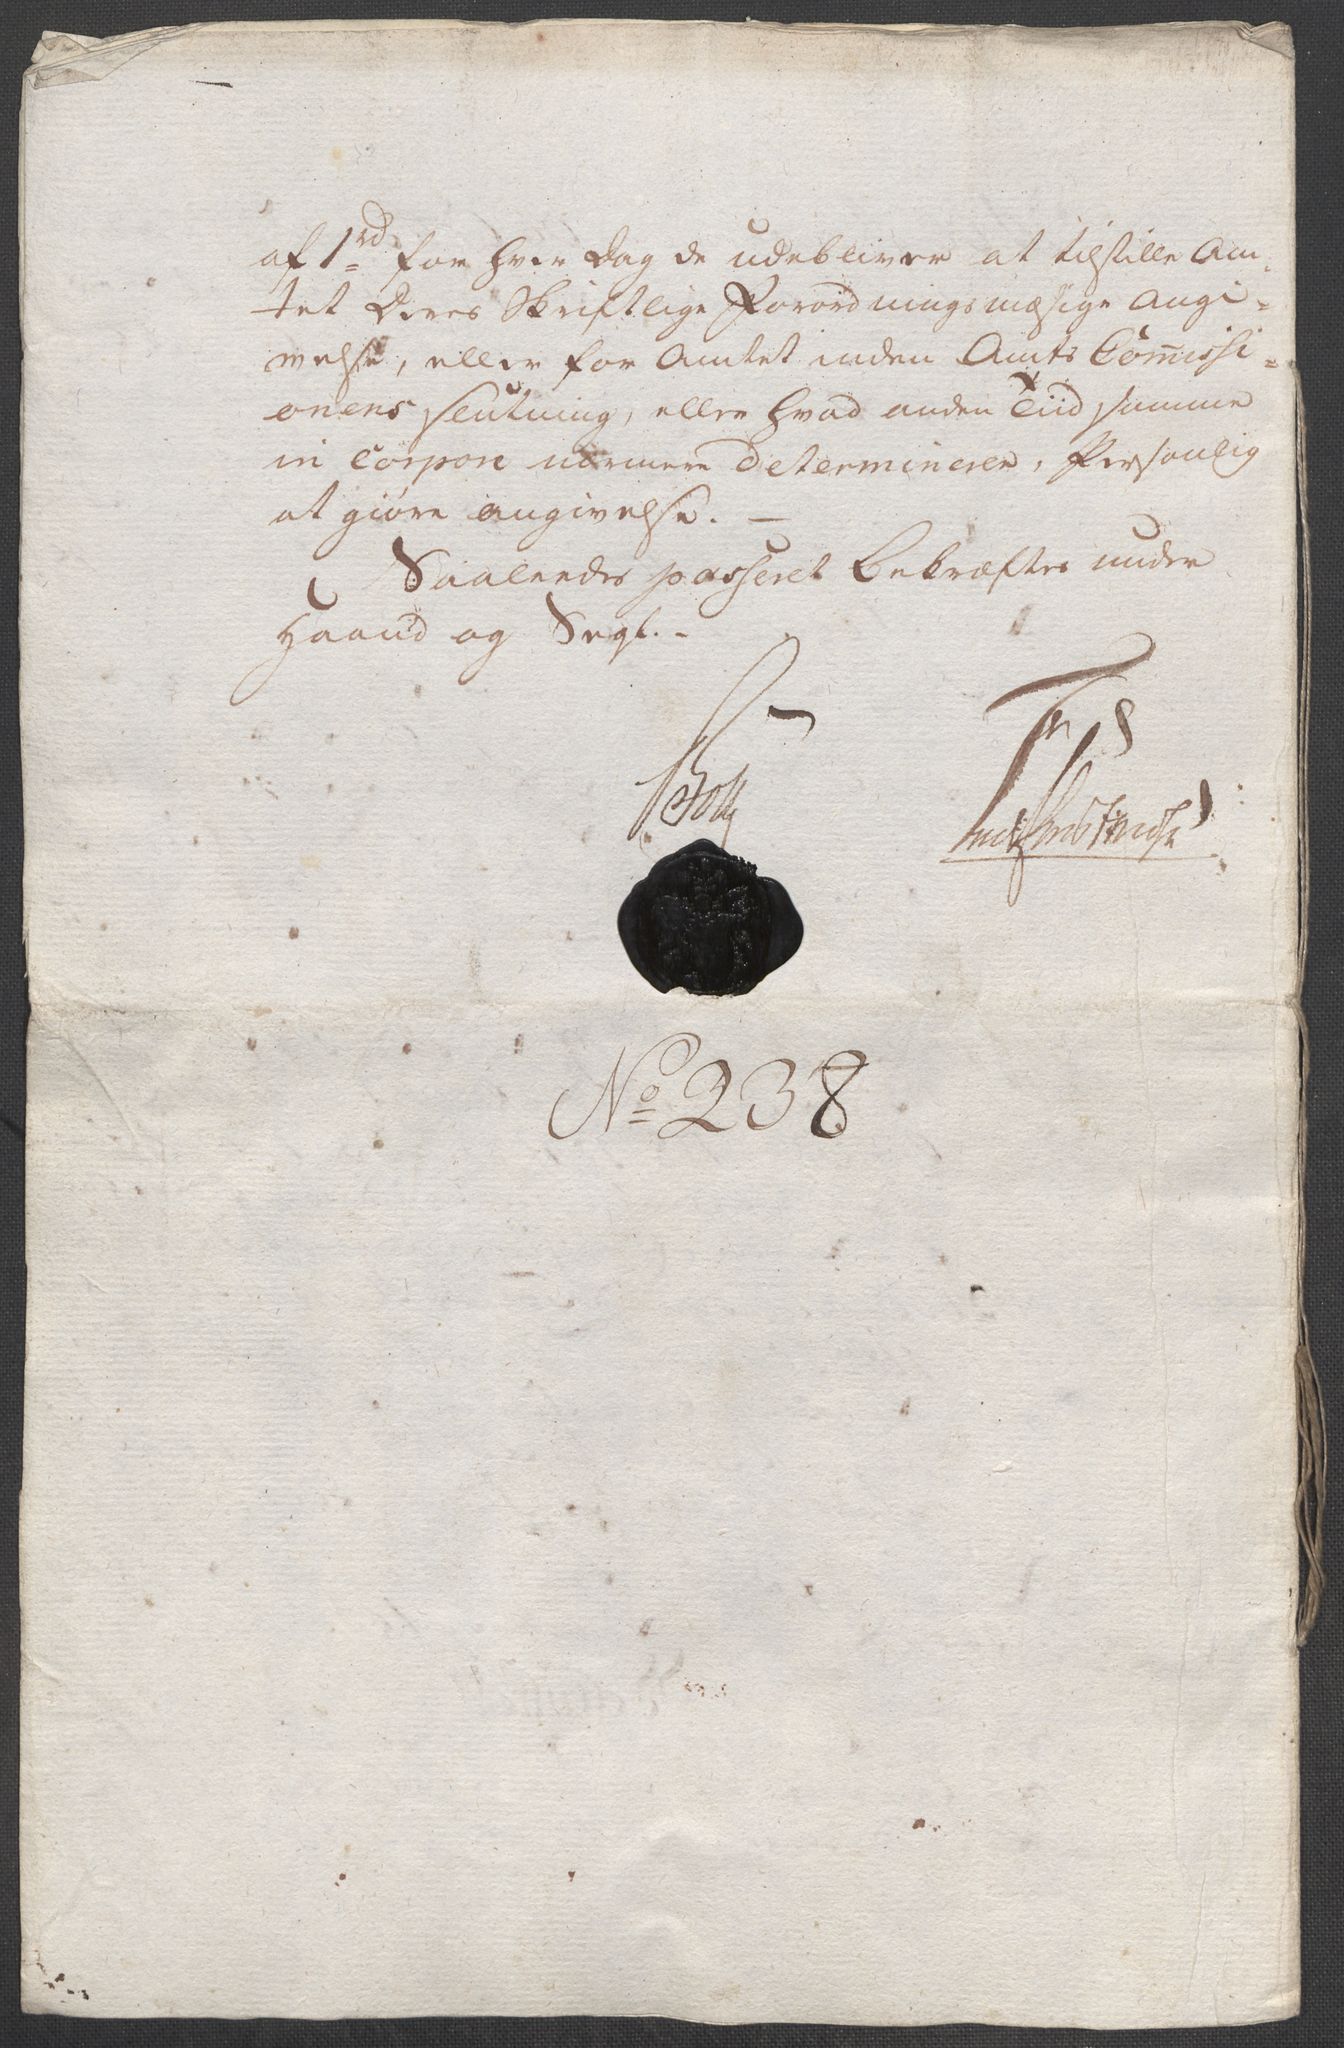 af 1 rd for hver Dag de udebliver at tilstille Am-
tet Deres Skriftlige Forordningsmæsige Angi=
velse, eller for Amtet inden Amts Com̃issi=
onens slutning, eller hvad anden Tiid samme
in Corpore nermere Determinerer, Personlig
at giøre angivelse. —
Saaledes passeret Bekræftes under
Haand og Segl. -
No 238